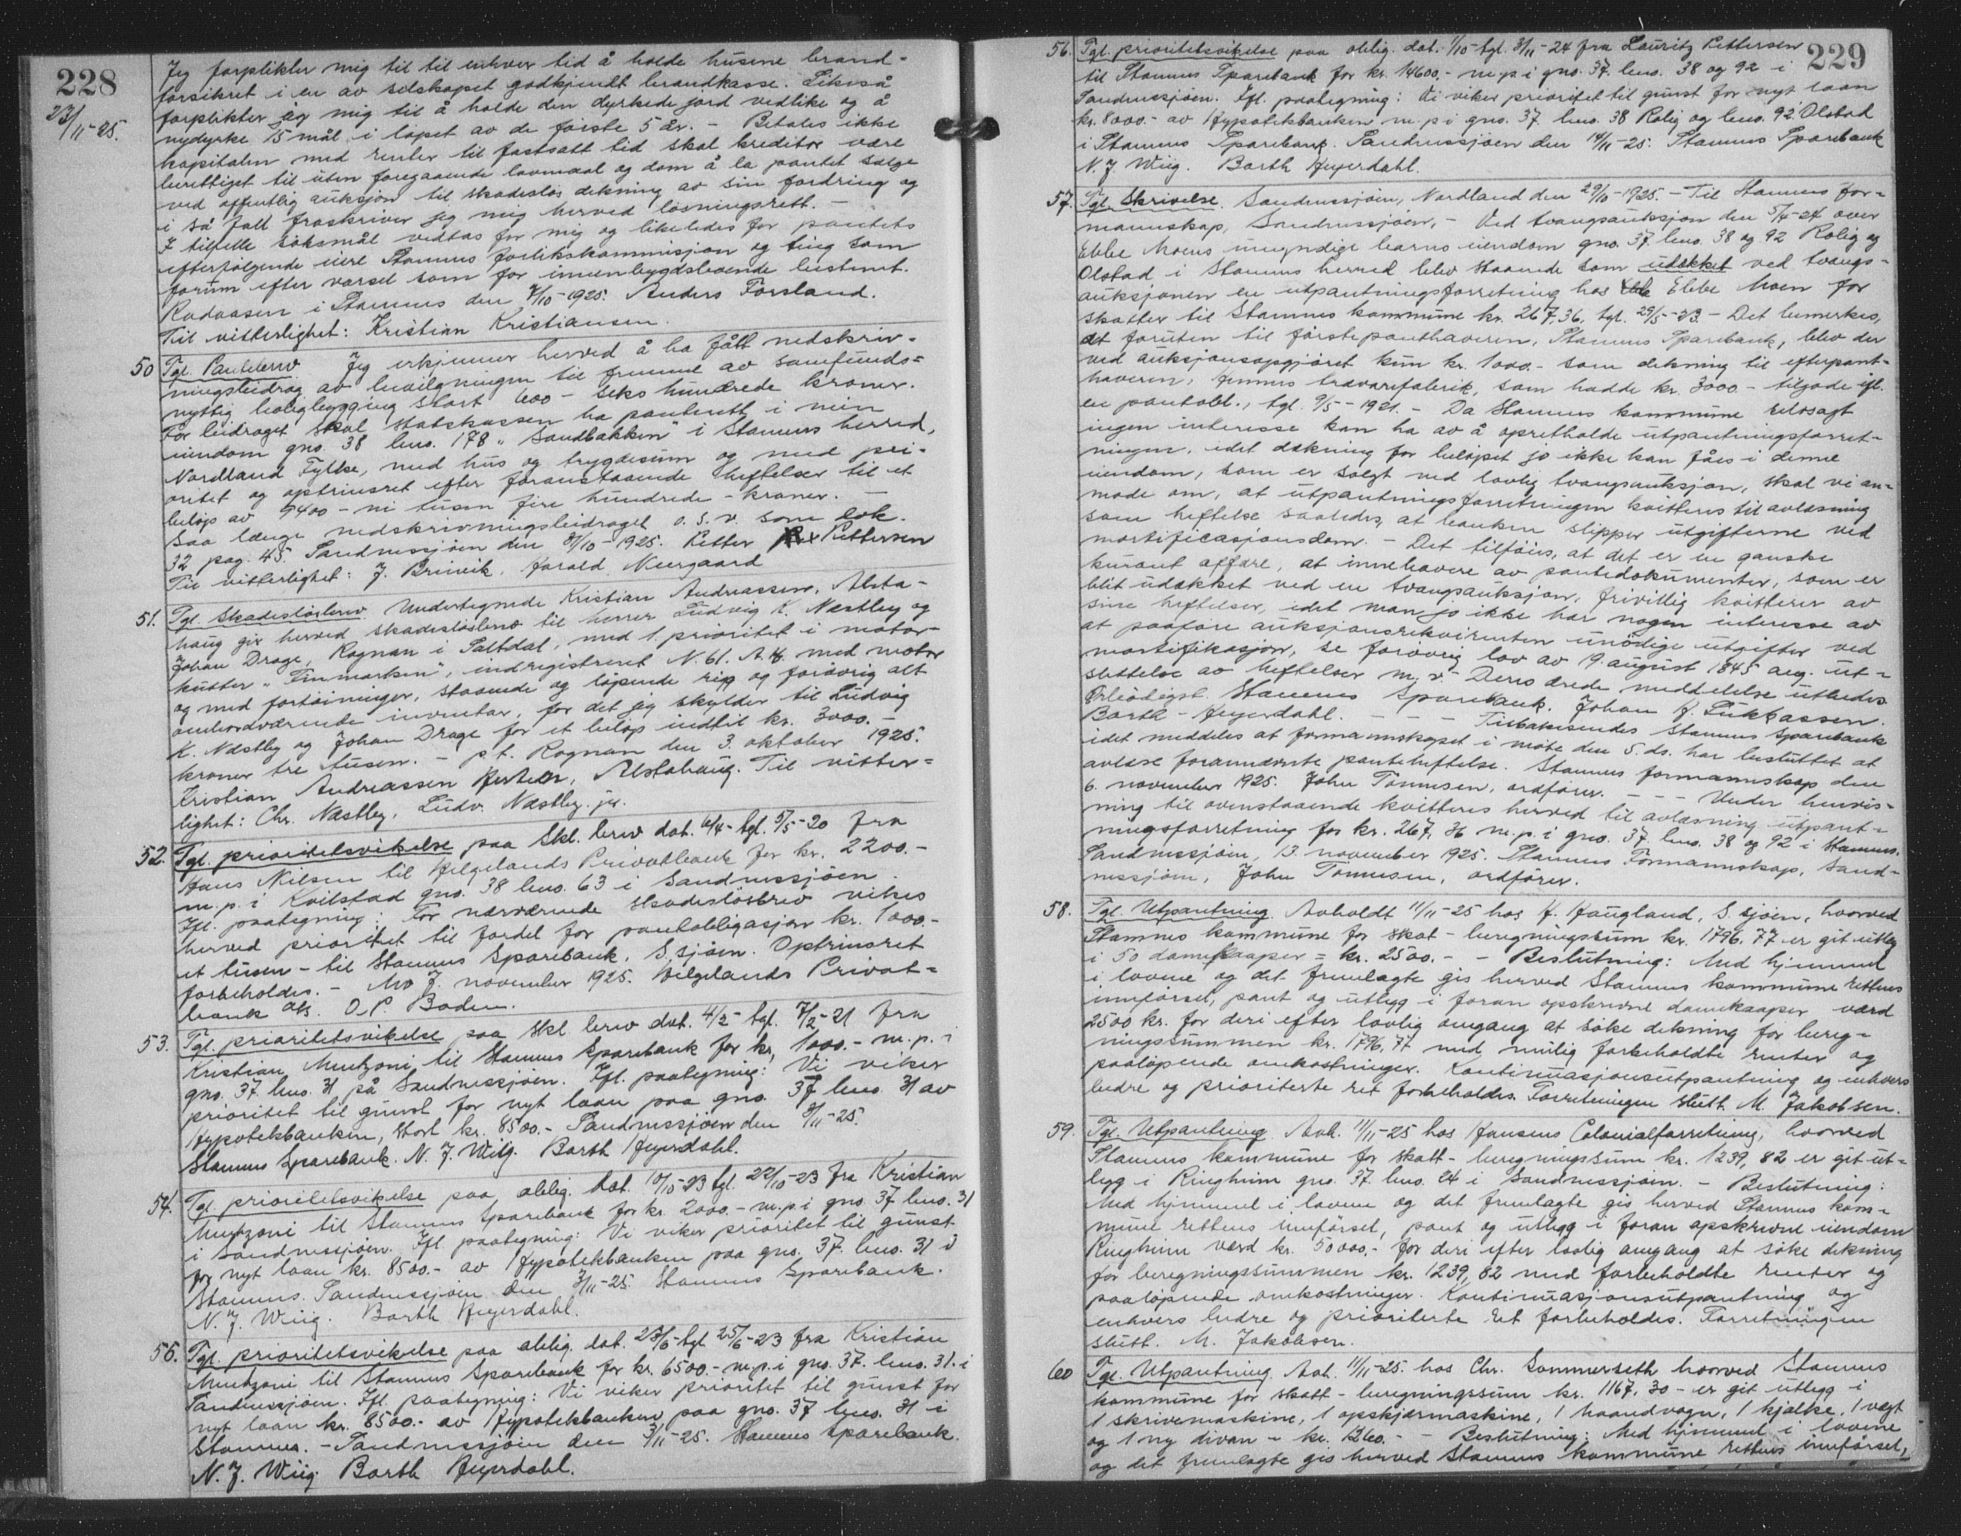 228
23/11-25.
Jeg forplikter mig til til enhver tid å holde husene brand-
forsikret i en av selskapet godkjendt brandkasse. Likeså
forplikter jeg mig til å holde den dyrkede jord vedlike og å
nydyrke 15 mål i løpet av de første 5 år. - Betales ikke
kapitalen med renter til fastsatt tid skal kreditor være
berettiget til uten foregaaende lovmaal og dom å la pantet sælge
ved offentlig auksjon til skadesløs dekning av sin fordring og
i så fall fraskriver jeg mig herved løsningsrett. -
I tilfelle søksmål vedtas for mig og likeledes for pantets
efterfølgende eiere Stamnes forlikskommisjon og ting som
forum efter varsel som for innenbygdsboende bestemt.
i Stamnes den 7/10-1925. Anders Forsland.
Til vitterlighet: Kristian Kristiansen.
50 Tgl. Pantebrev Jeg erkjenner herved å ha fått nedskriv-
ningsbidrag av bevilgningen til fremme av samfunds-
nyttig boligbygging stort 600 - seks hundrede kroner.
For bidraget skal statskassen ha panterett i min
eiendom gno. 38 bno. 178 "Sandbakken" i Stamnes herred,
Nordland Fylke, med hus og brygdesum og med pri-
oritet og optrinsret efter foranstaaende heftelser til et
beløp av 9400 - ni tusen fire hundrede - kroner. -
Saa længe nedskrivningsbidraget o.s.v. som bok.
32 pag. 45. Sandnessjøen den 8/10-1925. Petter Pettersen
Til vitterlighet: J. Brinvik. Harald Neergaard
51. Tgl. Skadesløsbrev Undertegnede Kristian Andreassen, Alsta-
haug gir herved skadesløsbrev til herrer Ludvig K. Næstby og
Johan Drage, Rognan i Saltdal, med 1. prioritet i motor-
kutter "Finmarken", indregistreret N. 61. A.H. med motor
og med fortøininger, staaende og løpende rigg og forøvrig alt
ombordværende inventar, for det jeg skylder til Ludvig
K. Næstby og Johan Drage for et beløp indtil kr. 3000.-
kroner tre tusen. - p.t. Rognan den 3. oktober 1925.
Kristian Andreassen, Alstahaug. Til vitter-
lighet: Chr. Næstby, Ludv. Næstby. jr.
52. Tgl. prioritetsvikelse paa Skl. brev dat. 6/4- tgl. 5/5-20 fra
Hans Nilsen til Helgelands Privatbank for kr. 2200.-
m.p. i Kvilstad gno. 38 bno. 63 i Sandnessjøen.
Ifl. paategning: For nærværende skadesløsbrev vikes
herved prioritet til fordel for pantobligasjon kr. 1000.-
et tusen - til Stamnes Sparebank, S.sjøen. Optrinsret
forbeholdes. - Mo 7. november 1925. Helgelands Privat-
bank A/s. O. P. Boden.
53. Tgl. prioritetsvikelse paa Skl. brev dat. 4/2- tgl. 7/2-21 fra
Kristian Mentzoni til Stamnes Sparebank for kr. 1000.- m.p. i
gno. 37 bno. 31 på Sandnessjøen. Ifl. paategning: Vi viker
prioritet til gunst for nyt laan paa gno. 37 bno 31 av
Hypotekbanken, stort kr. 8500.- Sandnessjøen den 3/11-25.
Stamnes Sparebank. N. J. Wiig. Barth Heyerdahl.
54. Tgl. prioritetsvikelse paa oblig. dat. 10/10-23 tgl. 22/10-23 fra Kristian
Mentzoni til Stamnes Sparebank for kr. 2000.- m.p. i gno. 37 bno. 31
i Sandnessjøen. Ifl paategning: Vi viker prioritet til gunst
for nyt laan kr. 8500.- av Hypotekbanken paa gno. 37. bno. 31 i
Stamnes. Sandnessjøen den 3/11-25. Stamnes Sparebank.
N. J. Wiig. Barth Heyerdahl.
55. Tgl. prioritetsvikelse paa oblig. dat. 23/6- tgl 25/6-23 fra Kristian
Mentzoni til Stamnes Sparebank for kr. 6500.- m.p. i gno. 37. bno. 31. i
Sandnessjøen. Ifl. paategning: Vi viker prioritet til gunst for
nyt laan kr. 8500.- av Hypotekbanken paa gno. 37 bno. 31 i
Stamnes. - Sandnessjøen den 3/11-25. Stamnes Sparebank.
N. J. Wiig. Barth Heyerdahl.
229
56. Tgl. prioritetsvikelse paa oblig. dat. 1/10- tgl. 3/11-24 fra Lauritz Pettersen
til Stamnes Sparebank for kr. 14600.- m.p. i gno. 37. bno. 38 og 92 i
Sandnessjøen. Ifl. paategning: Vi viker prioritet til gunst for nyt laan
kr. 8000.- av Hypotekbanken m.p. i gno. 37 bno. 38 Rolig og bno. 92 Olstad
i Stamnes Sparebank. Sandnessjøen den 14/11-25. Stamnes Sparebank
N. J. Wiig. Barth Heyerdahl.
57. Tgl. Skrivelse. Sandnessjøen, Nordland den 29/10-1925. - Til Stamnes for-
mannskap, Sandnessjøen, - Ved tvangsauksjon den 5/4-24 over
Ebbe Moens umyndige barns eiendom gno. 37 bno. 38 og 92 Rolig og
Olstad i Stamnes herred blev staaende som udekket ved tvangs-
auksjonen en utpantningsforretning hos Ebbe Moen for
skatter til Stamnes kommune kr. 267,36, tgl. 29/5-23. - Det bemerkes,
at foruten til førstepanthaveren, Stamnes Sparebank, blev der
ved auksjonsopgjøret kun kr. 1000.- som dekning til efterpant-
haveren, trævarefabrik, som hadde kr. 3000.- tilgode ifl.
en pantobl., tgl. 9/5-1921. - Da Stamnes kommune selvsagt
ingen interesse kan ha av å opretholde utpantningsforret-
ningen, idet dekning for beløpet jo ikke kan fåes i denne
eiendom, som er solgt ved lovlig tvangsauksjon, skal vi an-
mode om, at utpantningsforretningen kvitteres til avlæsning
som heftelse saaledes, at banken slipper utgifterne ved
mortificasjonsdom. - Det tilføies, at det er en ganske
kurant affære, at innehavere av pantedokumenter, som er
blit udækket ved en tvangsauksjon, frivillig kvitterer av
sine heftelser, idet man jo ikke har nogen interesse av
at paaføre auksjonsrekvirenten unødige utgifter ved
mortifikasjon, se forøvrig lov av 19. august 1845 ang. ut-
slettelse av heftelser m.v. Deres ærede meddelelse utbedes.
Ærbødigst Stamnes Sparebank. Johan K Lukkassen.
Barth-Heyerdahl. - - - Tilbakesendes Stamnes Sparebank
idet meddeles at formannskapet i møte den 5. ds. har besluttet at
avlese forannævnte panteheftelse. Stamnes formannskap den
6. november 1925. John Tønnesen, ordfører. - - - Under henvis-
ning til ovenstaaende kvitteres herved til avlæsning utpant-
ningsforretning for kr. 267,36 m.p. i gno. 37. bno. 38 og 92 i Stamnes.
Sandnessjøen, 13. november 1925. Stamnes Formannskap, Sand-
nessjøen, John Tønnesen, ordfører.
58. Tgl. Utpantning. Avholdt 11/11-25 hos K. Haugland, S.sjøen, hvorved
Stamnes kommune for skat - beregningssum kr. 1796,77 er git utleg
i 50 damekaaper = kr. 2500.- - Beslutning: Med hjemmel
i lovene og det fremlagte gis herved Stamnes kommune rettens
innførsel, pant og utlegg i foran opskrevne damekaaper værd
2500 kr. for deri efter lovlig omgang at søke dekning for bereg-
ningssummen kr. 1796,77 med mulig forbeholdte renter og
paaløpende omkostninger. Kontinuasjonsutpantning og enhvers
bedre og prioriterte ret forbeholdes. Forretningen slutt. M. Jakobsen.
59. Tgl. Utpantning. Avh. 11/11-25 hos Jansens Colonialforretning, hvorved
Stamnes kommune for skatt - beregningssum kr. 1239,82 er git ut-
legg i Ringheim gno. 37. bno. 24 i Sandnessjøen. - Beslutning:
Med hjemmel i lovene og det fremlagte gis herved Stamnes kom-
mune rettens innførsel, pant og utlegg i foran opskrevne eiendom
Ringheim værd kr. 50000.- for deri efter lovlig omgang at søke dekning
for beregningssummen kr. 1239,82 med forbeholdte renter og
paaløpende omkostninger. Kontinuasjonsutpantning og
enhvers bedre og prioriterte ret forbeholdes. Forretningen
slutt. M. Jakobsen.
60 Tgl. Utpantning. Avh. 11/11-25. hos Chr. Sommerseth hvorved Stamnes
kommune for skatt - beregningssum kr. 1167,30 - er git utlegg i
1 skrivemaskine, 1 opskjærmaskine, 1 haandvogn, 1 kjælke, 1 vægt
og 1 ny divan = kr. 1360.- - Beslutning: Med hjemmel i lovene
og det fremlagte gis herved Stamnes kommune rettens innførsel,